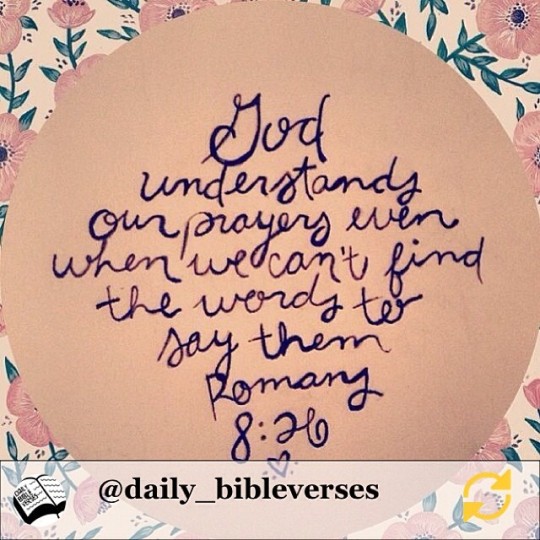 God
understands
our prayers even
when we can't find
the words to
say them
Romans
8:26
DAILY BIBLE VERSES
@daily_bibleverses